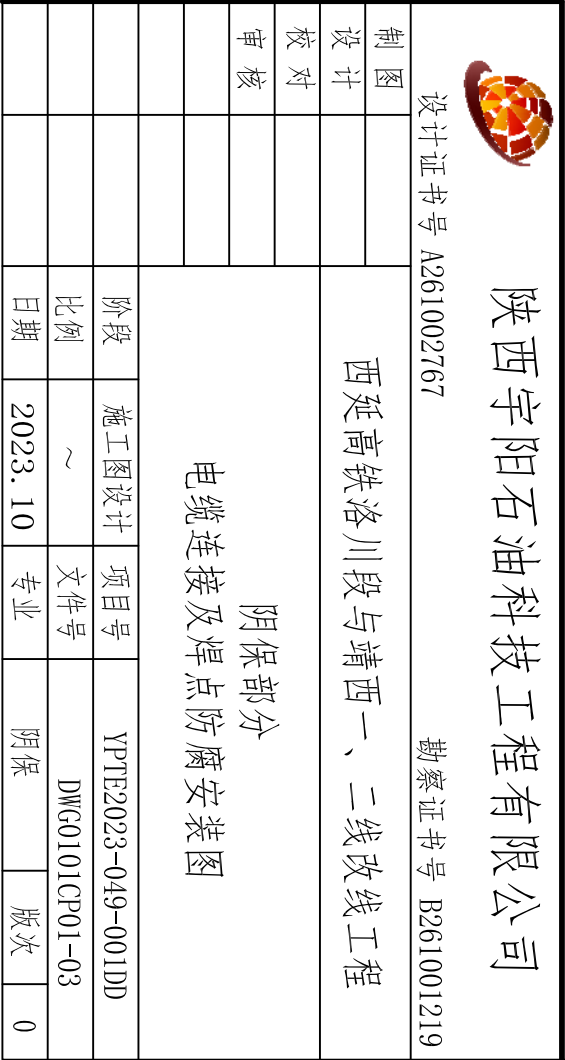 陕西宇阳石油科技工程有限公司
设计证书号 A261002767
勘察证书号 B261001219
制图
西延高铁洛川段与靖西一、二线改线工程
设计
校对
阴保部分
审核
电缆连接及焊点防腐安装图
阶段 施工图设计 项目号 YPTE2023-049-001DD
比例 ~ 文件号 DWG0101CP01-03
日期 2023.10 专业 阴保 版次 0